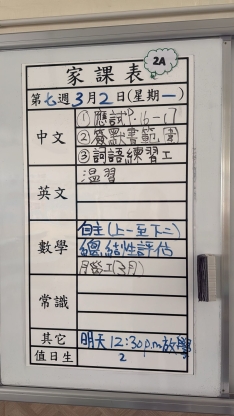 家課表
2A
第七週3月2日(星期一)
中文
①應試P.16-17
②齋默書範圍
③詞語練習工
英文
溫習
數學
自主(上一至下二)
總結性評估
常識
其它
明天12:30p.m放學
值日生
2